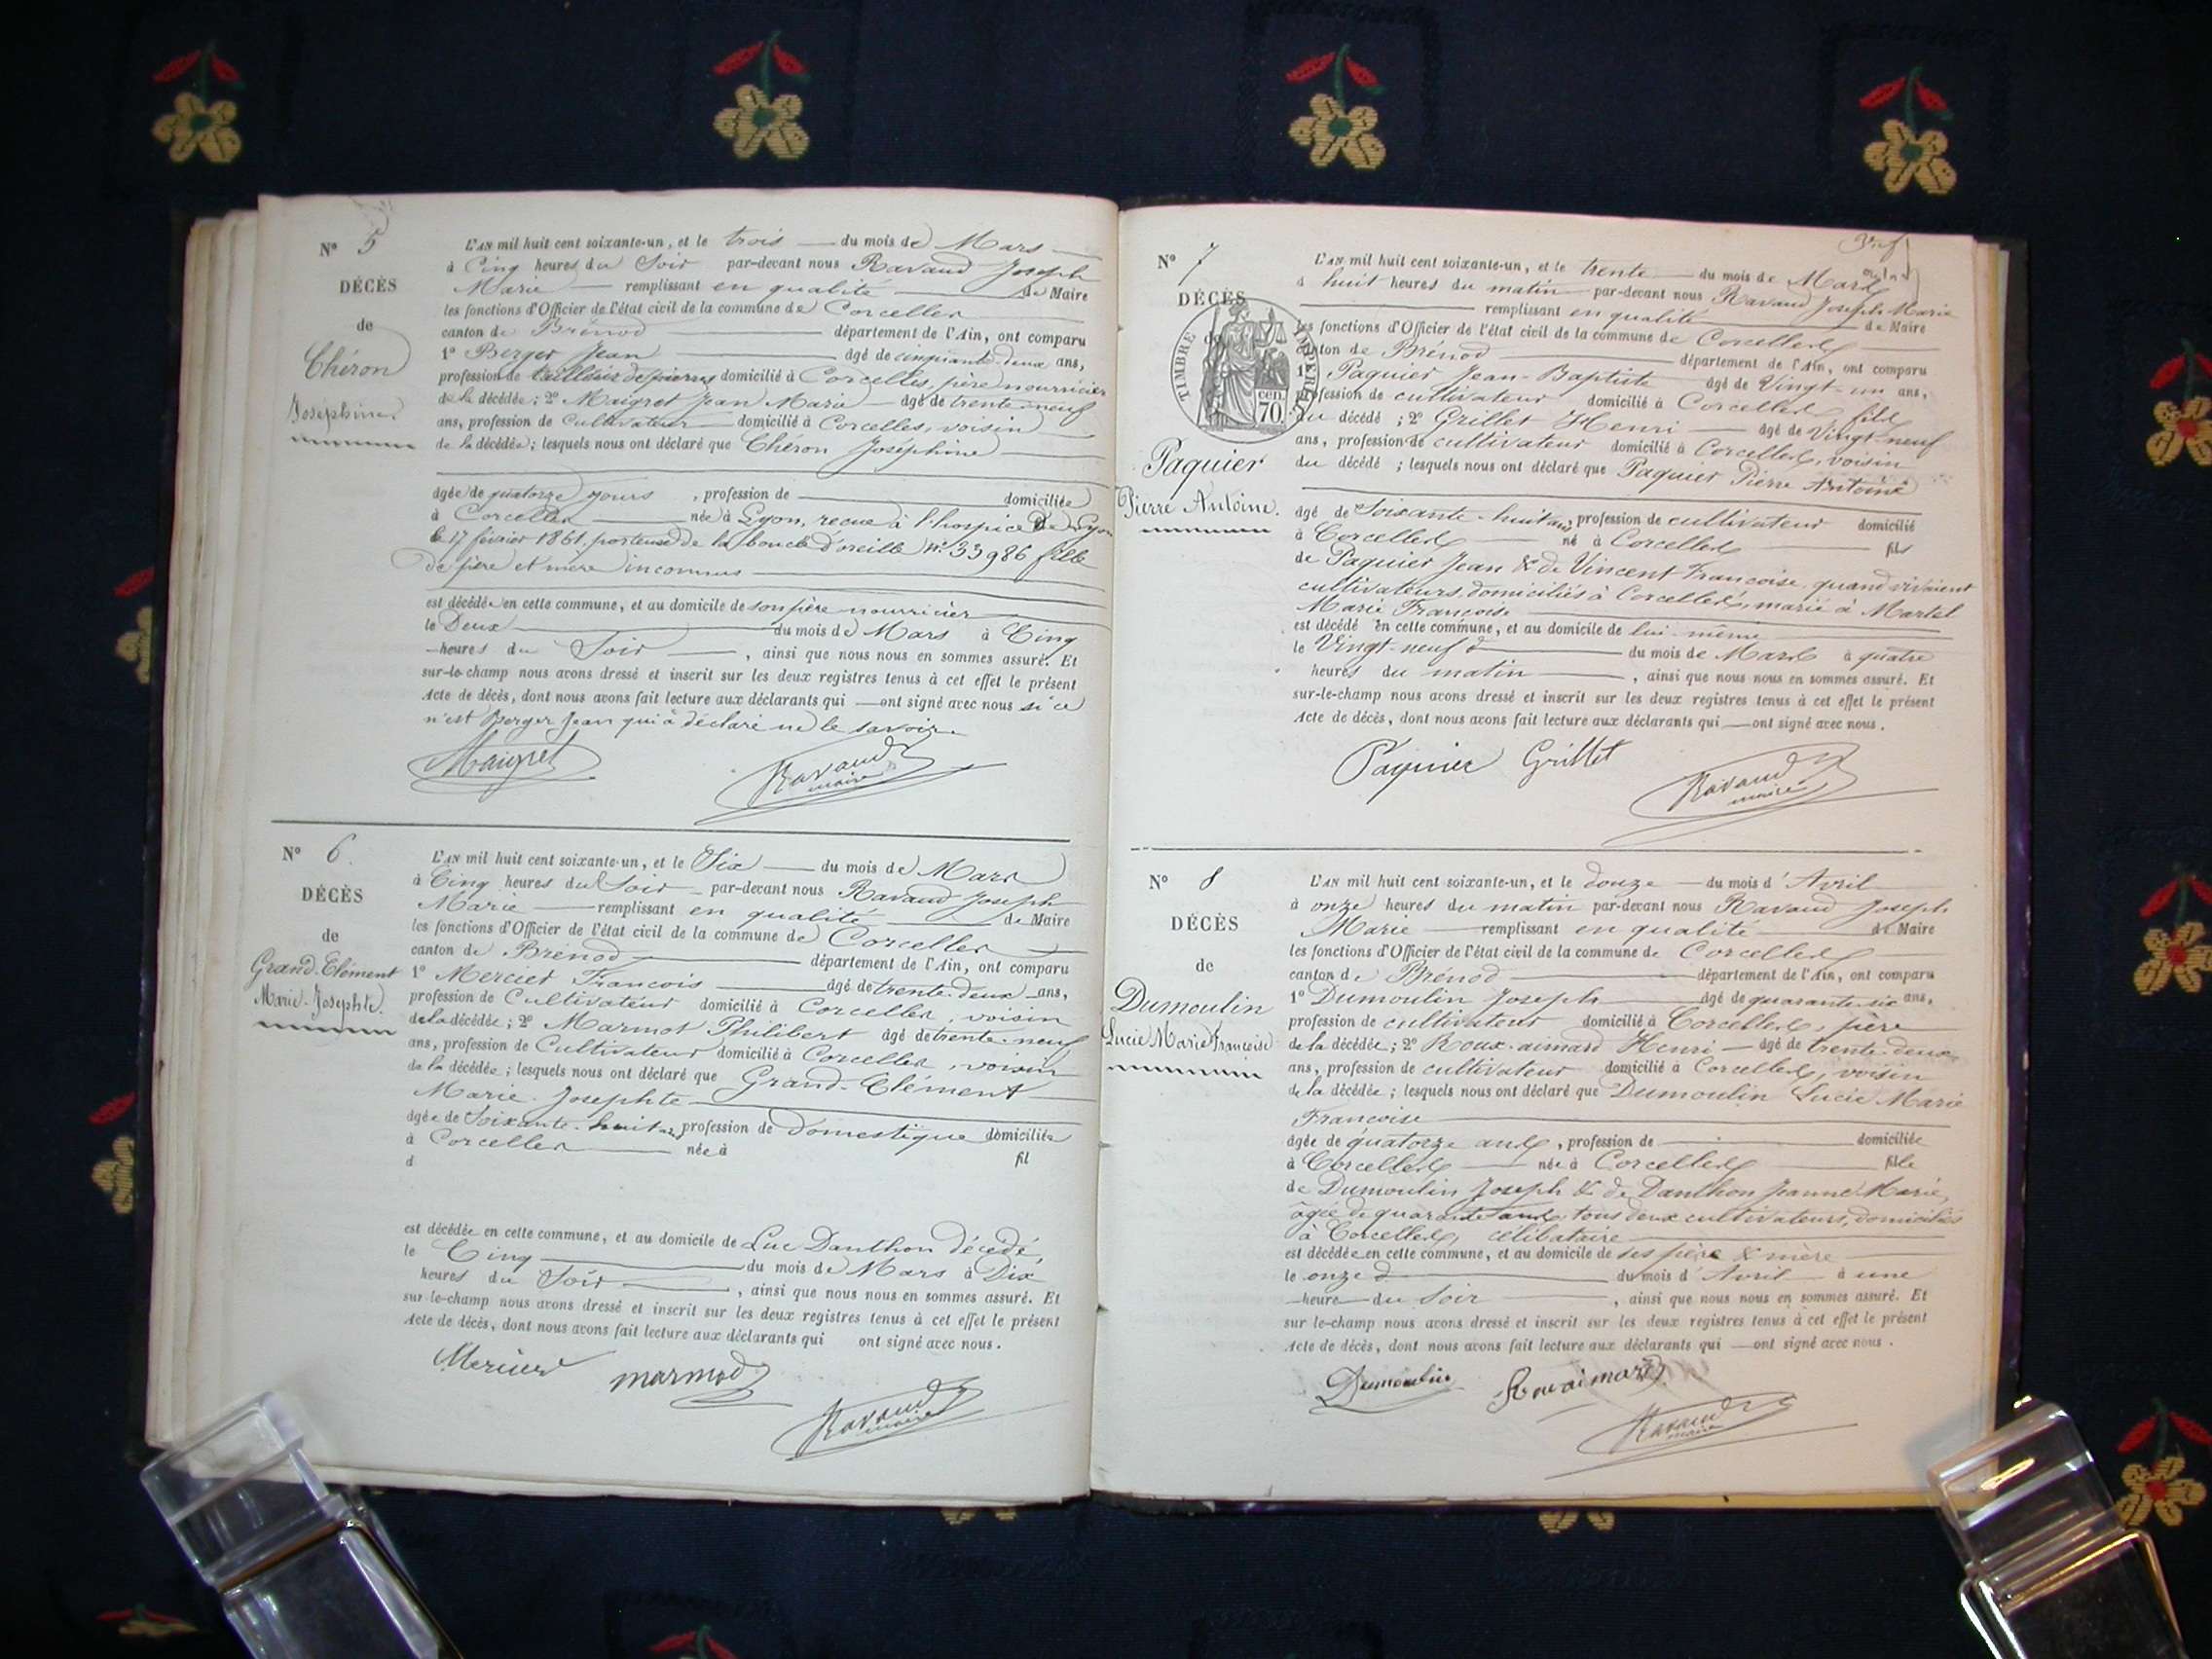 N° 5
DÉCÈS
de
Chéron
Joséphine
L'AN mil huit cent soixante-un, et le trois du mois de Mars
à Cinq heures du Soir par-devant nous Ravaud Joseph
Marie remplissant en qualité de Maire
les fonctions d'Officier de l'état civil de la commune de Corcelles
canton de Brénod département de l'Ain, ont comparu
1° Berger Jean âgé de cinquante-deux ans,
profession de tailleur de pierres domicilié à Corcelles, père nourricier
de la décédée ; 2° Maigret Jean Marie âgé de trente-neuf
ans, profession de Cultivateur domicilié à Corcelles, voisin
de la décédée ; lesquels nous ont déclaré que Chéron Joséphine
âgée de quatorze jours , profession de domiciliée
à Corcelles née à Lyon, recue à l'hospice de Lyon
le 17 février 1861, porteuse de la boucle d'oreille N° 33986 fille
de père et mère inconnus
est décédée en cette commune, et au domicile de son père nourricier
le Deux du mois de Mars à Cinq
heures du Soir , ainsi que nous nous en sommes assuré. Et
sur-le-champ nous avons dressé et inscrit sur les deux registres tenus à cet effet le présent
Acte de décès, dont nous avons fait lecture aux déclarants qui ont signé avec nous si ce
n'est Berger Jean qui a déclaré ne le savoir.
Maigret Ravaud
maire
N° 6.
DÉCÈS
de
Grand-Clément
Marie-Josephte.
L'AN mil huit cent soixante-un, et le Six du mois de Mars
à Cinq heures du Soir par-devant nous Ravaud Joseph
Marie remplissant en qualité de Maire
les fonctions d'Officier de l'état civil de la commune de Corcelles
canton de Brénod département de l'Ain, ont comparu
1° Mercier Francois âgé de trente-deux ans,
profession de Cultivateur domicilié à Corcelles, voisin
de la décédée ; 2° Marmot Philibert âgé de trente-neuf
ans, profession de Cultivateur domicilié à Corcelles, voisin
de la décédée ; lesquels nous ont déclaré que Grand-Clément
Marie-Josephte
âgée de Soixante-huit ans profession de Domestique domiciliée
à Corcelles née à fil
d
est décédée en cette commune, et au domicile de Luc Danthon décédé
le Cinq du mois de Mars à Dix
heures du Soir , ainsi que nous nous en sommes assuré. Et
sur-le-champ nous avons dressé et inscrit sur les deux registres tenus à cet effet le présent
Acte de décès, dont nous avons fait lecture aux déclarants qui ont signé avec nous.
Mercier marmod
Ravaud
maire
N° 7
DÉCÈS
de
TIMBRE IMPERIAL
70 cen.
Paquier
Pierre Antoine.
L'AN mil huit cent soixante-un, et le trente du mois de Mars
à huit heures du matin par-devant nous Ravaud Joseph Marie
remplissant en qualité de Maire
les fonctions d'Officier de l'état civil de la commune de Corcelles
canton de Brénod département de l'Ain, ont comparu
1° Paquier Jean-Baptiste âgé de Vingt-un ans,
profession de cultivateur domicilié à Corcelles fils
du décédé ; 2° Grillet Henri âgé de Vingt-neuf
ans, profession de cultivateur domicilié à Corcelles, voisin
du décédé ; lesquels nous ont déclaré que Paquier Pierre Antoine
âgé de Soixante-huit ans, profession de cultivateur domicilié
à Corcelles né à Corcelles fils
de Paquier Jean & de Vincent Francoise, quand vivaient
cultivateurs domiciliés à Corcelles, marié à Martel
Marie Françoise
est décédé en cette commune, et au domicile de lui-même
le Vingt-neuf du mois de Mars à quatre
heures du matin , ainsi que nous nous en sommes assuré. Et
sur-le-champ nous avons dressé et inscrit sur les deux registres tenus à cet effet le présent
Acte de décès, dont nous avons fait lecture aux déclarants qui ont signé avec nous.
Paquier Grillet
Ravaud
maire
N° 8
DÉCÈS
de
Dumoulin
Lucie Marie Francoise
L'AN mil huit cent soixante-un, et le douze du mois d'Avril
à onze heures du matin par-devant nous Ravaud Joseph
Marie remplissant en qualité de Maire
les fonctions d'Officier de l'état civil de la commune de Corcelles
canton de Brénod département de l'Ain, ont comparu
1° Dumoulin Joseph âgé de quarante-six ans,
profession de cultivateur domicilié à Corcelles, père
de la décédée ; 2° Roux-aimard Henri âgé de trente-deux
ans, profession de cultivateur domicilié à Corcelles, voisin
de la décédée ; lesquels nous ont déclaré que Dumoulin Lucie Marie
Francoise
âgée de quatorze ans, profession de domiciliée
à Corcelles née à Corcelles fille
de Dumoulin Joseph & de Danthon Jeanne Marie,
âgée de quarante ans tous deux cultivateurs, domiciliés
à Corcelles, célibataire
est décédée en cette commune, et au domicile de ses père & mère
le onze du mois d'Avril à une
heure du Soir , ainsi que nous nous en sommes assuré. Et
sur le-champ nous avons dressé et inscrit sur les deux registres tenus à cet effet le présent
Acte de décès, dont nous avons fait lecture aux déclarants qui ont signé avec nous.
Dumoulin Rouaimard
Ravaud
maire